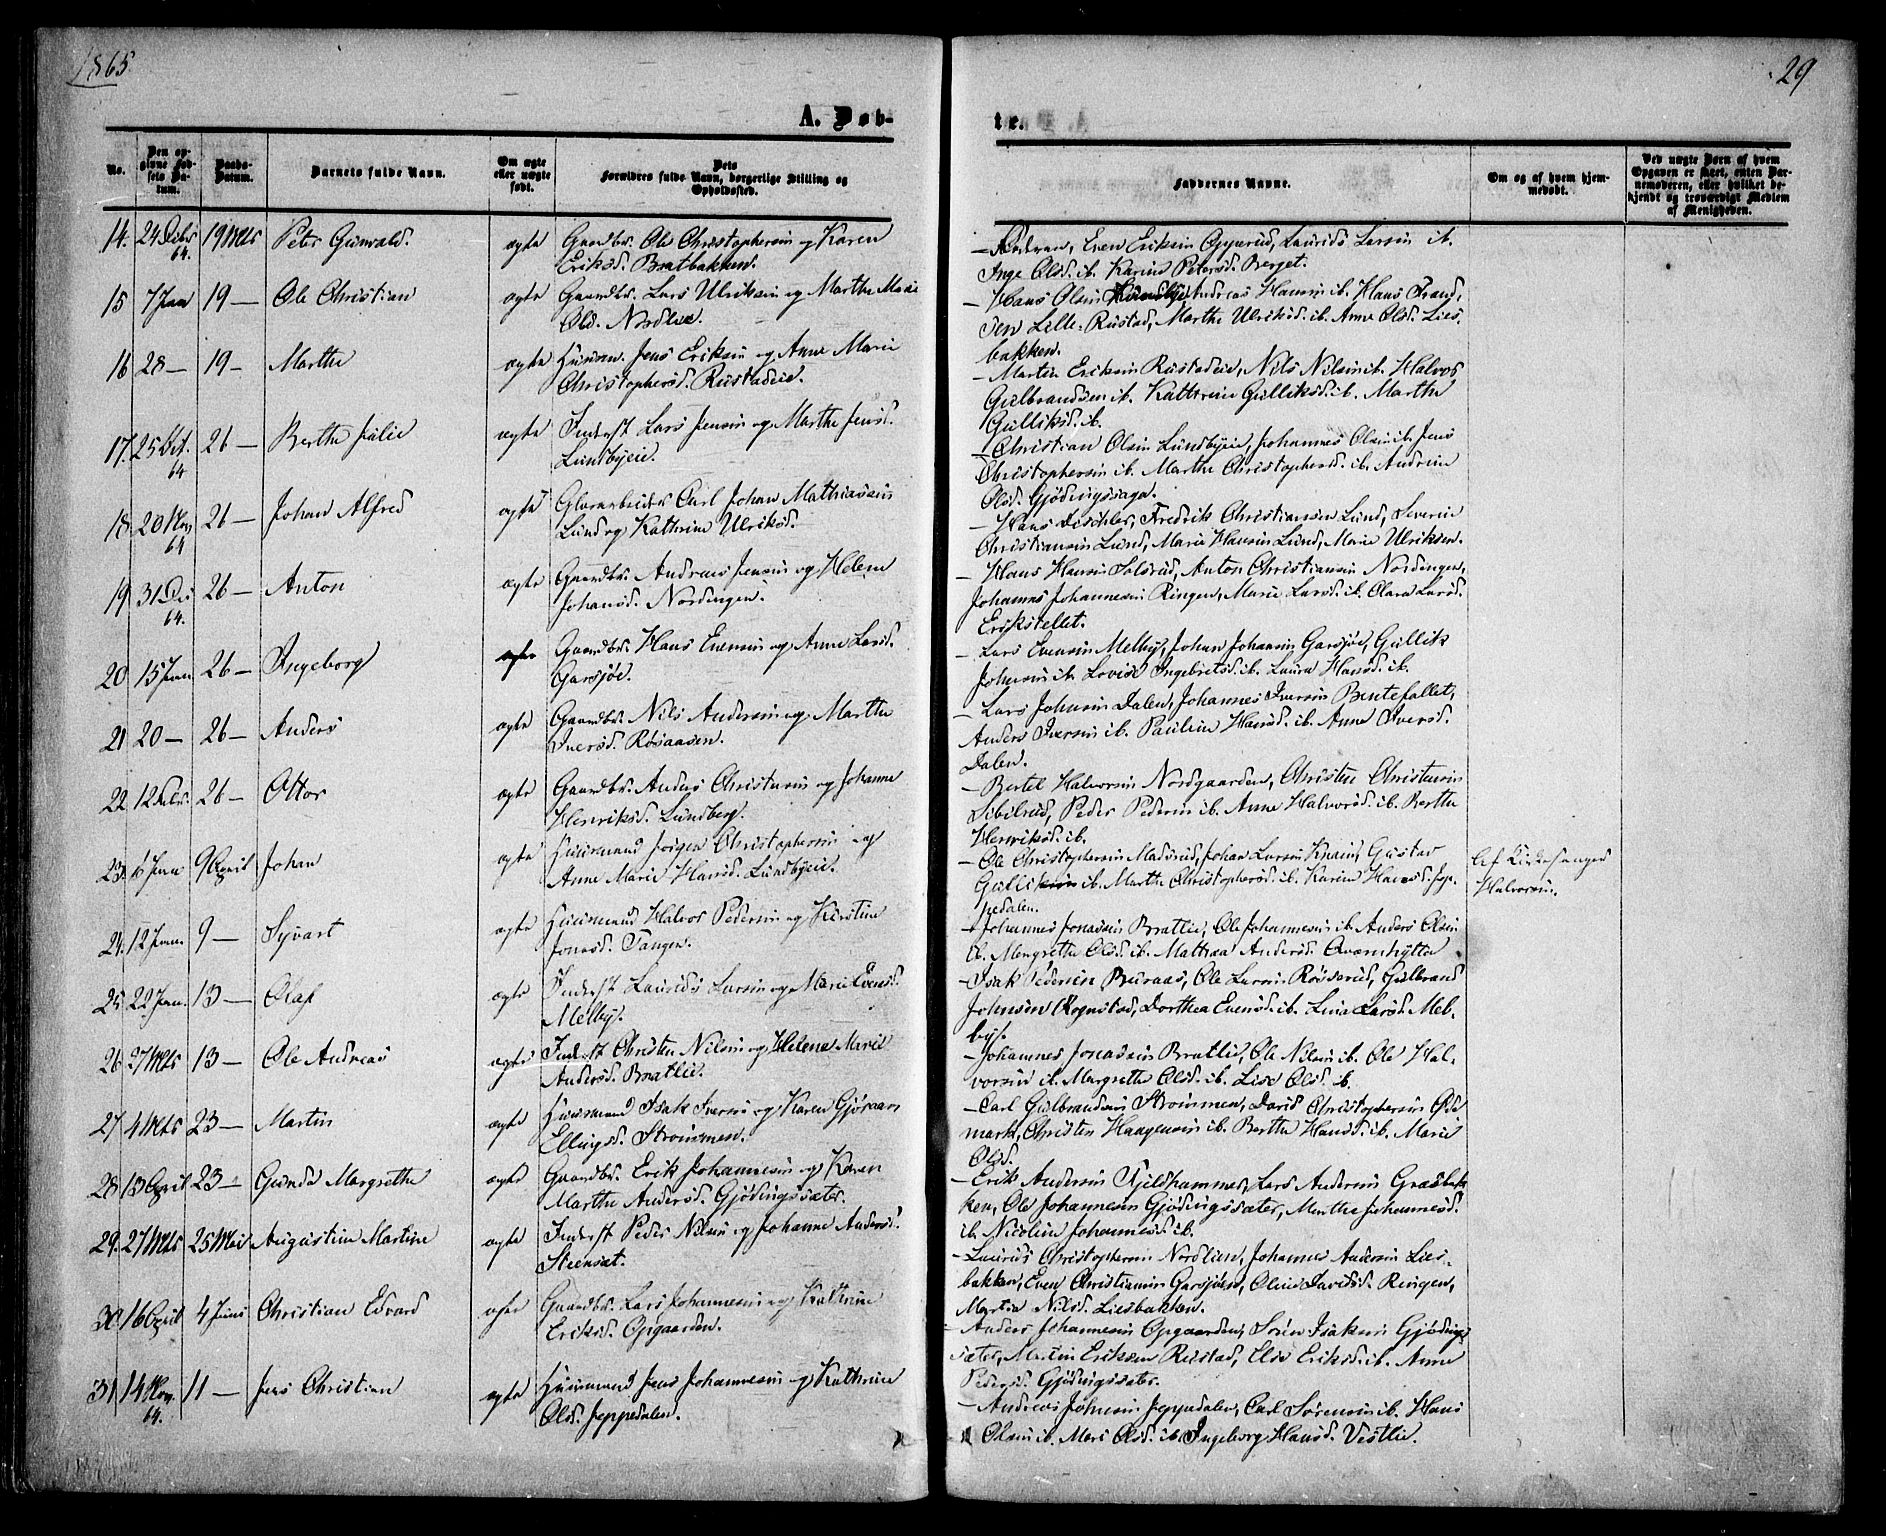 1865.
29
A. Døb-
te.
No.
Den opgivne Fødsels Datum.
Daabs-Datum.
Barnets fulde Navn.
Om ægte eller uægte født.
Dets Forældres fulde Navn, borgerlige Stilling og Opholdssted.
Faddernes Navne.
Om og af hvem hjemmedøbt.
Ved uægte Børn af hvem Opgaven er skeet, enten Barnemoderen, eller hvilket bekjendt og troværdigt Medlem af Menigheden.
14. 24 Debr 64. 19 Mts Peter Grünvald. ægte Gaardbr. Ole Christophersen og Karen
Eriksd. Bratbakken.
Even Eriksen Opperud, Laurids Larsen ib.
Inge Olsd. ib. Karine Petersd. Berget.
15 7 Jan 19 — Ole Christian ægte Gaardbr. Lars Ulriksen og Marthe Marie
Olsd. Nordlie.
— Hans Olsen Andreas Hansen ib. Hans Frand-
sen Lille-Rustad, Marthe Ulriksd. ib. Anne Olsd. Lies-
bakken.
16 28 — 19 — Marthe ægte Husm. Jens Eriksen og Anne Marie
Christophersd. Rustadeie.
— Martin Eriksen Rustadeie, Nils Nilsen ib. Halvor
Gulbrandsen ib. Kathrine Gulliksd. ib. Marthe
Gulliksd. ib.
17. 25 Oct. 64 26 — Berthe Julie ægte Inderst Lars Jensen og Marthe Jensd.
Lundbyeie.
— Christian Olsen Lundbyeie, Johannes Olsen ib. Jens
Christophersen ib. Marthe Christophersd. ib. Andrine
Olsd. Gjødingssaga.
18. 20 Nov 64 26 — Johan Alfred ægte Glasarbeider Carl Johan Mathiassen
Lund og Kathrine Ulriksd.
— Hans Tischler, Fredrik Christiansen Lund, Severin
Christiansen Lund, Marie Hansen Lund, Marie Ulriksen.
19. 31 De 64. 26 — Anton ægte Gaardbr. Andreas Jensen og Helene
Johansd. Nordengen.
— Hans Hansen Solsrud, Anton Christiansen Nordengen,
Johannes Johannesen Ringen, Marie Larsd. ib. Olava Larsd.
Erikstellet.
20 15 Jan 26 — Ingeborg ægte Gaardbr. Hans Evensen og Anne Larsd.
Garsjøe.
— Lars Evensen Melby, Johan Johansen Garsjøe, Gullik
Johnsen ib. Lovise Ingebretsd. ib. Laura Hansd. ib.
21 20 — 26 — Anders ægte Gaardbr. Nils Andersen og Marthe
Iversd. Røsaasen.
— Lars Johnsen Dalen, Johannes Iversen Bentefallet,
Anders Iversen ib. Pauline Hansd. ib. Anne Iversd.
Dalen.
22 12 Febr. 26 — Ottar ægte Gaardbr. Anders Christensen og Johanne
Henriksd. Lundberg.
— Bertel Halvorsen Nordgaarden, Christen Christensen
Sibilrud, Peder Pedersen ib. Anne Halvorsd. ib. Berthe
Henriksd. ib.
23. 6 Jan 9 April Johan ægte Huusmand Jørgen Christophersen og
Anne Marie Hansd. Lundbyeie.
— Ole Christophersen Madsrud, Johan Larsen Knain, Gustav
Gulliksen ib. Marthe Christophersd. ib. Karine Hansd. Jep-
pedalen.
Af Kirkesanger
Halvorsen.
24. 12 Jan. 9 — Syvart ægte Huusmand Halvor Pedersen og Kirstine
Jonasd. Tangen.
— Johannes Jonassen Bratlie, Ole Johannesen ib. Anders Olsen
ib. Mergrethe Olsd. ib. Mathea Andersd. Qvernhytta
25. 22 Jan. 13 — Olaf ægte Inderst Laurids Larsen og Marie Evensd.
Melby.
— Isak Pedersen Buraas, Ole Larsen Røsserud, Gulbrand
Johnsen Rognstad, Dorthea Evensd. ib. Lina Larsd. Mel-
by.
26. 27 Mts 13 — Ole Andreas ægte Inderst Christen Nilsen og Helene Marie
Andersd. Bratlie.
— Johannes Jonassen Bratlie, Ole Nilsen ib. Ole Hal-
vorsen ib. Margrethe Olsd. ib. Lise Olsd. ib.
27. 4 Mts 23 — Martin ægte Huusmand Isak Iversen og Karen Gjøraan
Ellingsd. Strømmen.
— Carl Gulbrandsen Strømmen, David Christophersen Øde-
mark, Christen Haagensen ib. Berthe Hansd. ib. Marie
Olsd.
28. 13 April 23 — Gunda Margrethe ægte Gaardbr. Erik Johannesen og Karen
Marthe Andersd. Gjødingssæter.
— Erik Andersen Fjeldhammer, Lars Andersen Græsbak-
ken, Ole Johannesen Gjødingssæter, Marthe Johannesd.
ib. Nicoline Johannesd. ib.
29. 27 Mts 25 Mai Augustine Martine ægte Inderst Peder Nilsen og Johanne Andersd.
Steensæt.
— Laurids Christophersen Nordlien, Johannes Andersen Lies-
bakken, Even Christiansen Garsjøen, Oline Davidsd. Ringen,
Martia Nilsd. Liesbakken.
30. 16 April 4 Juni Christian Edvard ægte Gaardbr. Lars Johannesen og Kathrine
Eriksd. Opgaarden.
— Anders Johannesen Opgaarden, Søren Isaksen Gjødings-
sæter, Martin Eriksen Rustad, Else Eriksd. ib. Anne
Pedersd. Gjødingssæter.
31. 14 Nov. 64. 11 — Jens Christian ægte Huusmand Jens Johannesen og Kathrine
Olsd. Jeppedalen.
— Andreas Johnsen Jeppedalen, Carl Sørensen ib. Hans
Olsen ib. Mari Olsd. ib. Ingeborg Hansd. Vestlie.